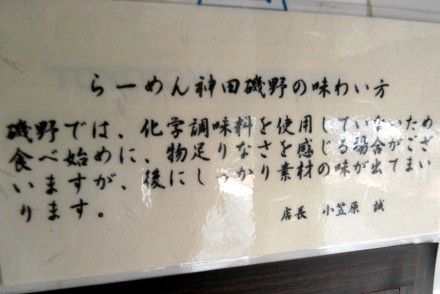 らーめん神田磯野の味わい方
磯野では、化学調味料を使用していないため
食べ始めに、物足りなさを感じる場合がござ
いますが、後にしっかり素材の味が出てまい
ります。
店長 小笠原 誠